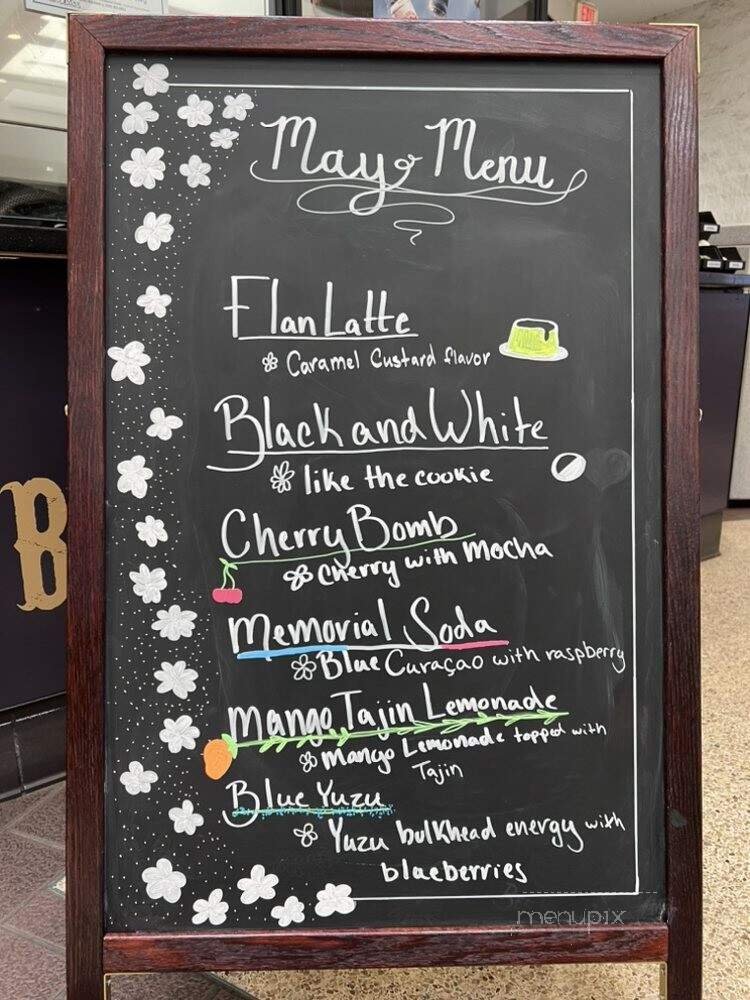 EXIT
May Menu
Flan Latte
Caramel Custard flavor
Black and White
like the cookie
Cherry Bomb
Cherry with Mocha
B
B
Memorial Soda
Blue Curaçao with raspberry
Mango Tajin Lemonade
Mango Lemonade topped with
Tajin
Blue Yuzu
Yuzu bulkhead energy with
blueberries
menupix